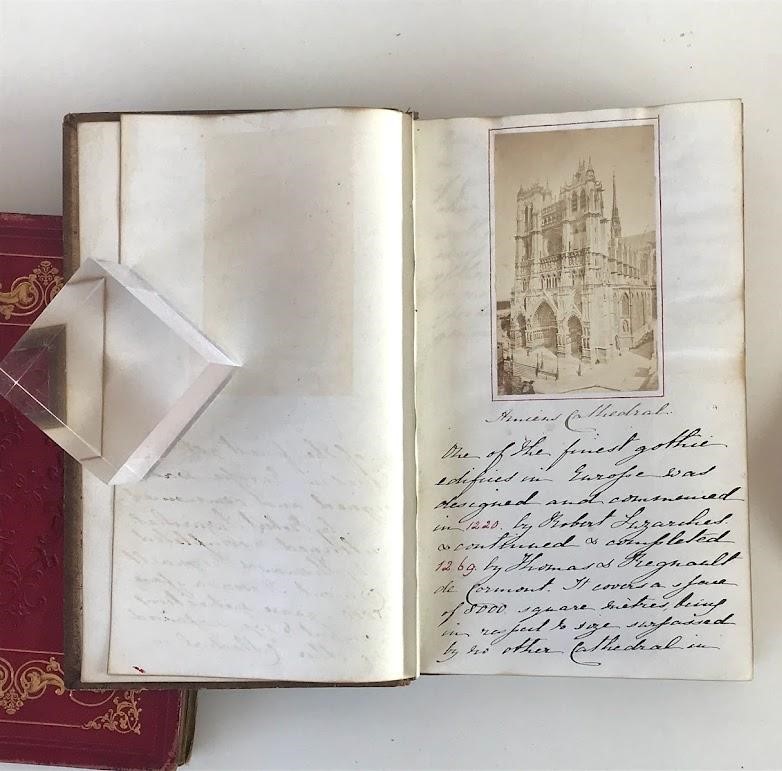 Amiens Cathedral.
One of the finest gothic
edifices in Europe was
designed and commenced
in 1220. by Robert Luzarches
& continued & completed
1269 by Thomas & Regnault
de Cormont. It covers a space
of 8000 square metres, being
in respect to size surpassed
by no other Cathedral in